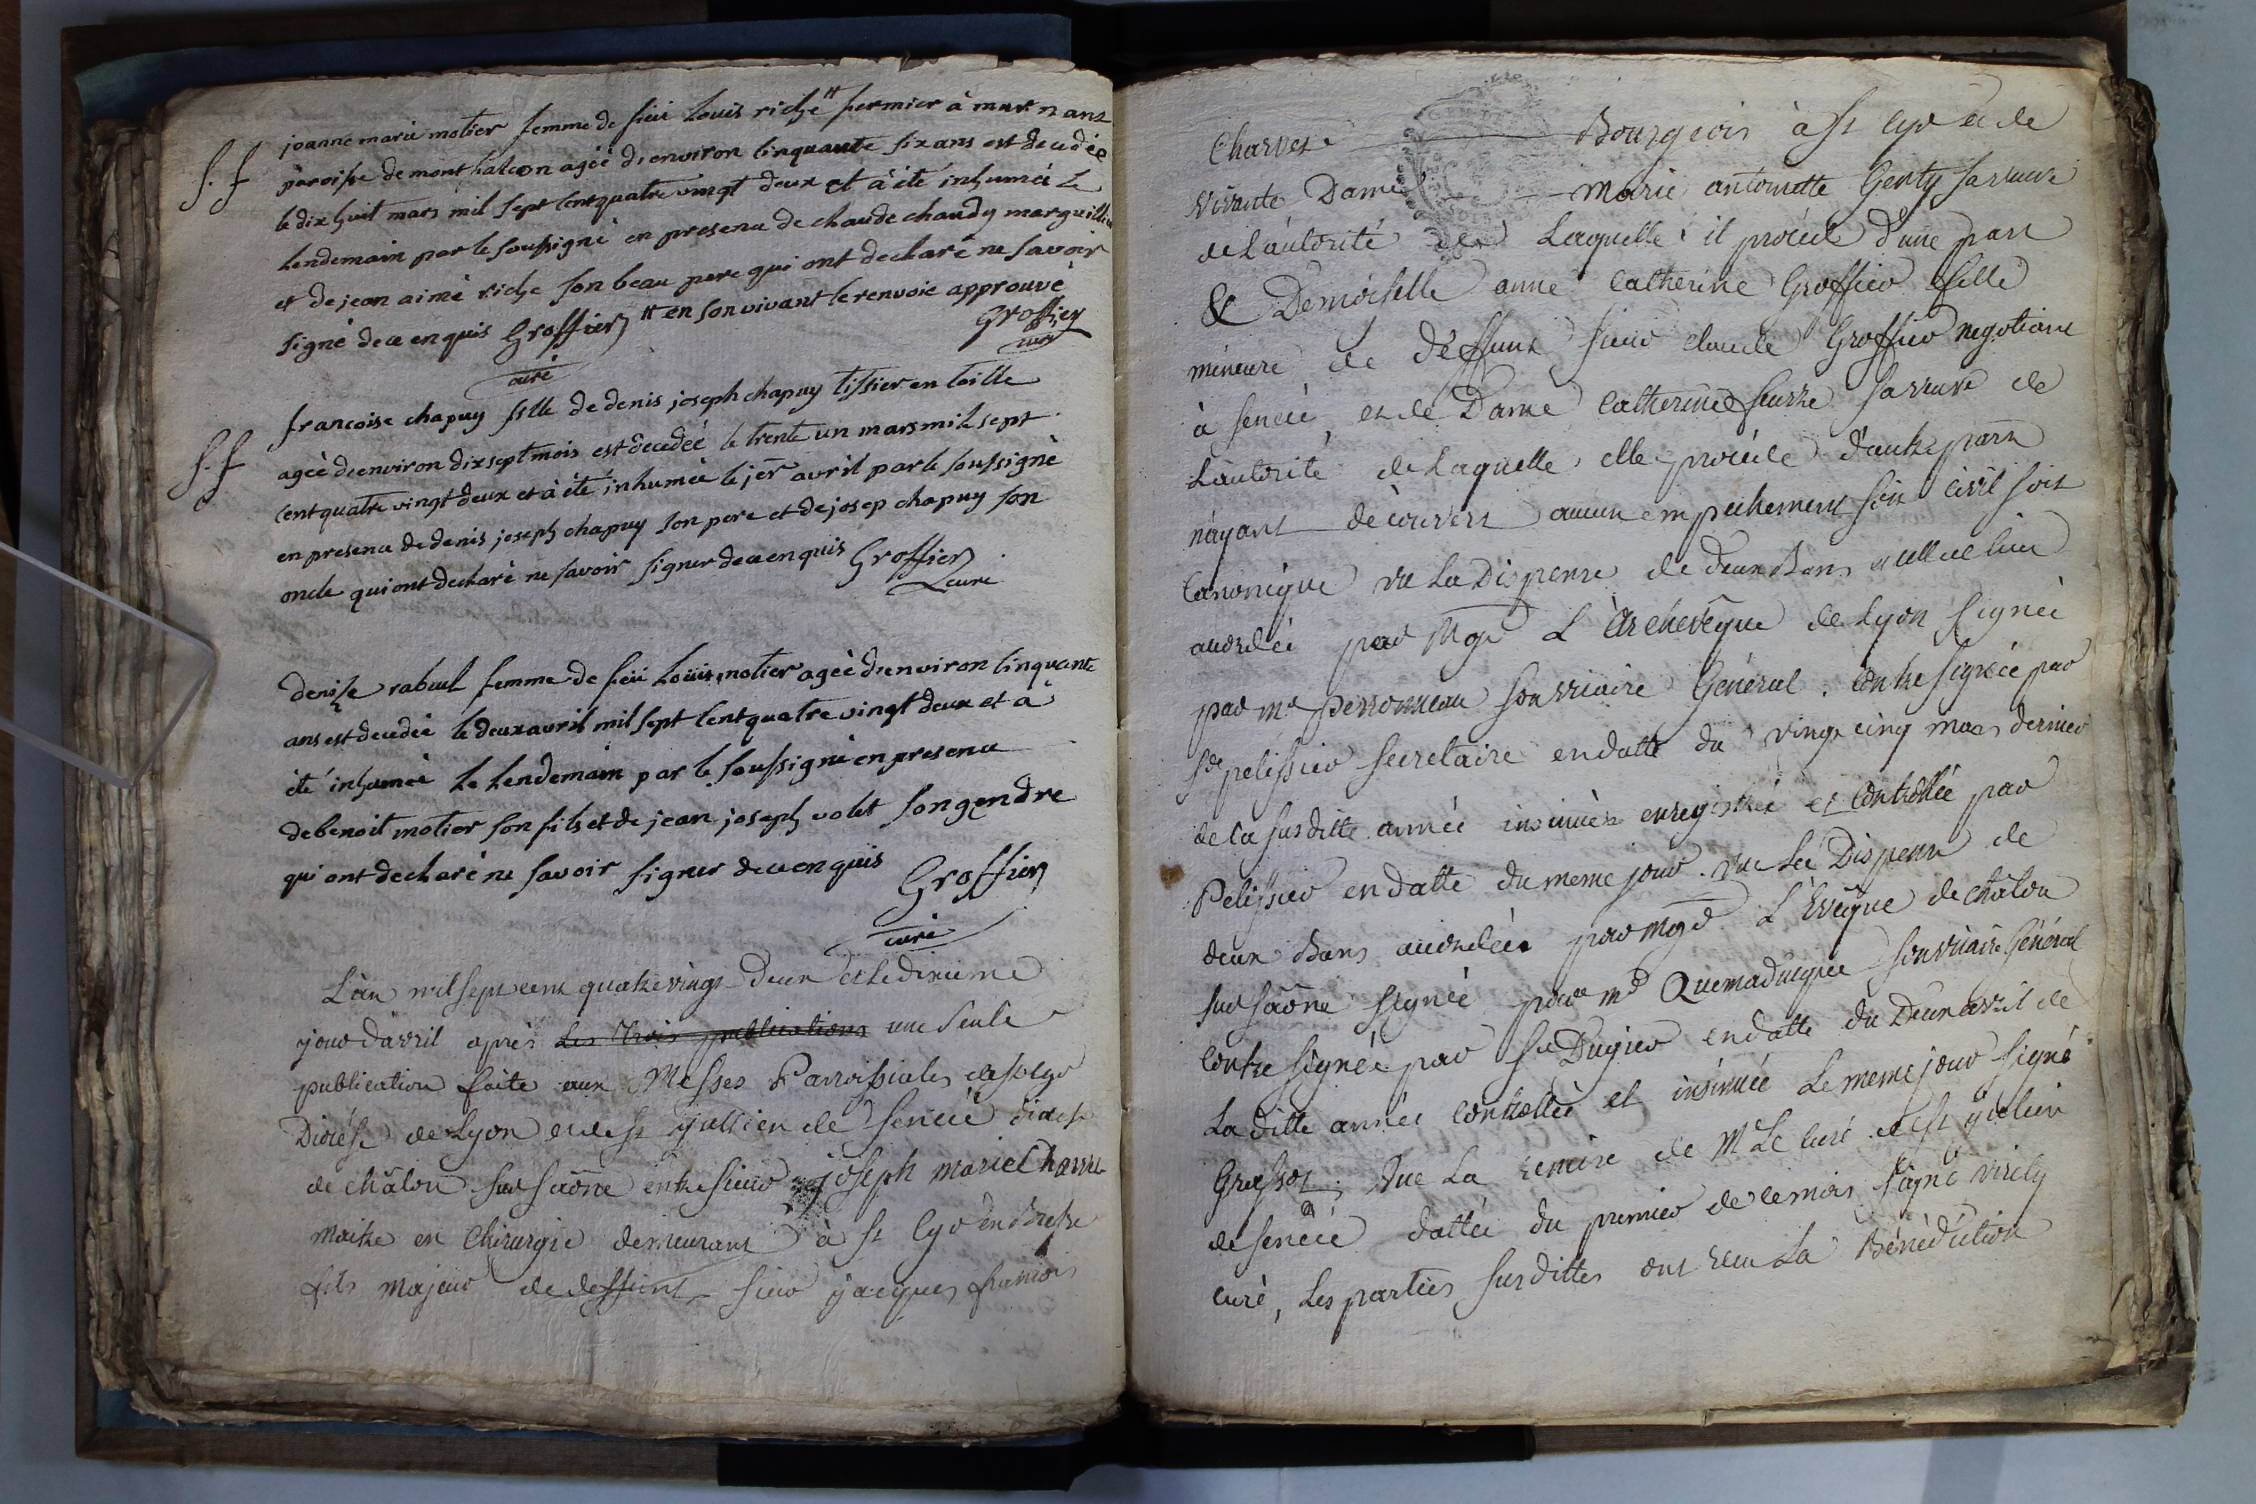 joanne marie motier femme de feü Louis riche # fermier à marnans
s. f paroisse de monthalcon ageé denviron cinquante six ans est decedée
le dix huit mars mil sept cent quatre vingt deux et à été inhumeé le
lendemain par le soussigné en presence de claude chaudy marguillier
et de jean aimé riche son beau pere qui ont declaré ne savoir
signé de ce enquis Groffier # en son vivant le renvoie approuvé
curé
Groffier
curé
francoise chapuy fille de denis joseph chapuy tissier en toille
s. f ageé denviron dix sept mois est decedeé le trente un mars mil sept
cent quatre vingt deux et à été inhumeé le jer avril par le soussigné
en presence de denis joseph chapuy son pere et de josep chapuy son
oncle qui ont declaré ne savoir signer de ce enquis Groffier
curé
denise rabuel femme de feü Loüis motier ageé denviron cinquante
ans est decedeé le deux avril mil sept cent quatre vingt deux et à
été inhumeé le lendemain par le soussigné en presence
de benoit motier son fils et de jean joseph volet son gendre
qui ont declaré ne savoir signer de ce enquis Groffier
curé
L'an mil sept cent quatre vingt deux et le dixieme
jour d'avril après les trois publications une seule
publication faite aux Messes Parroissiales de st Cyr
Diocése de Lyon et de st jullien de senecé diocese
de châlon sur saône entre sieur joseph marie Charvet
maitre en Chirurgie demeurant à st Cyr en Bresse
fils majeur de deffunt sieur jacques francois
Charvet Bourgeois à st Cyr et de
vivante Dame marie antoinette Genty sa veuve
de l'autorité de Laquelle il procéde d'une part
& Demoiselle anne catherine Groffier fille
mineure de déffunt sieur claude Groffier negotiant
à senecé et de Dame catherine sa veuve de
L'autorité de Laquelle elle procéde d'autre part
n'ayant découvert aucun empechement soit civil soit
canonique vu La Dispense de deux Bans
accordée par Mgr L'Archevêque de Lyon signée
par mr perronneau son vicaire Général, contresignée par
sr pelissier secretaire en datte du vingt cinq mars dernier
de la susditte année insinuée enregistrée et controllée par
Pelissier en datte du meme jour. vue La Dispense de
deux Bans accordée par Mgr L'Evêque de châlon
sur saône signée par mr Quemadueque son vicaire Général
contresignée par sr Dugier en datte du Deux avril de
La ditte année controllée et insinuée Le meme jour signé
vue La remise de Mr Le curé de st jullien
de senecé dattée du premier de ce mois signé virely
curé, Les parties susdittes ont recu La Bénédiction